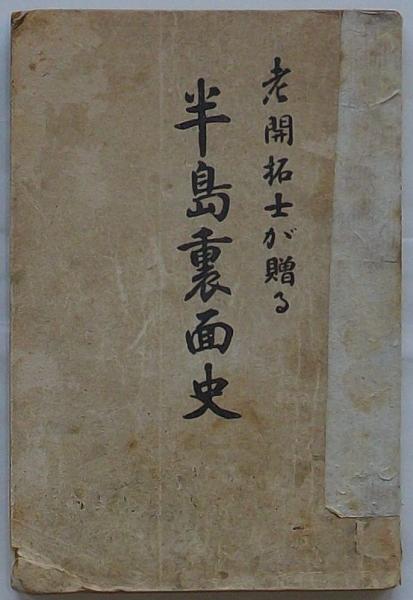 老開拓士が贈る
半島裏面史